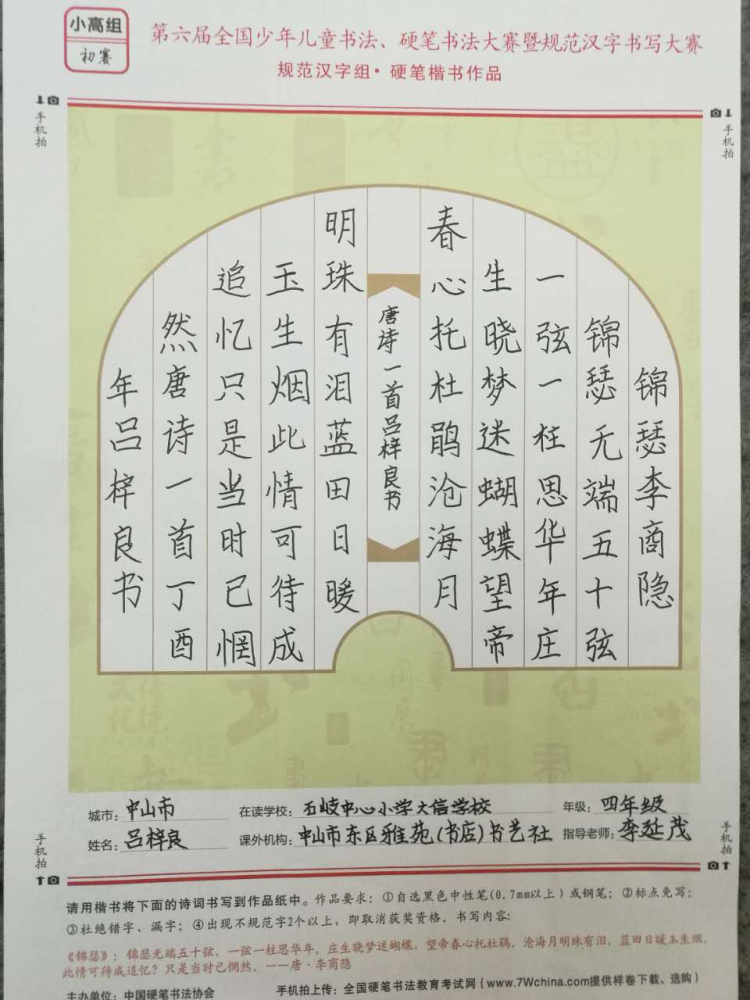 小高组
初赛
第六届全国少年儿童书法、硬笔书法大赛暨规范汉字书写大赛
规范汉字组·硬笔楷书作品
手机拍
手机拍
锦瑟李商隐
锦瑟无端五十弦
一弦一柱思华年庄
生晓梦迷蝴蝶望帝
春心托杜鹃沧海月
唐诗一首吕梓良书
明珠有泪蓝田日暖
玉生烟此情可待成
追忆只是当时已惘
然唐诗一首丁酉
年吕梓良书
城市:中山市 在读学校:石岐中心小学大信学校 年级:四年级
姓名:吕梓良 课外机构:中山市东区雅苑(书店)书艺社 指导老师:李延茂
手机拍
手机拍
请用楷书将下面的诗词书写到作品纸中。作品要求:①自选黑色中性笔(0.7mm以上)或钢笔;②标点免写;
③杜绝错字、漏字;④出现不规范字2个以上,即取消获奖资格。书写内容:
《锦瑟》:锦瑟无端五十弦,一弦一柱思华年。庄生晓梦迷蝴蝶,望帝春心托杜鹃。沧海月明珠有泪,蓝田日暖玉生烟。
此情可待成追忆?只是当时已惘然。——唐·李商隐
主办单位:中国硬笔书法协会 手机拍上传:全国硬笔书法教育考试网(www.7Wchina.com提供样卷下载、选购)